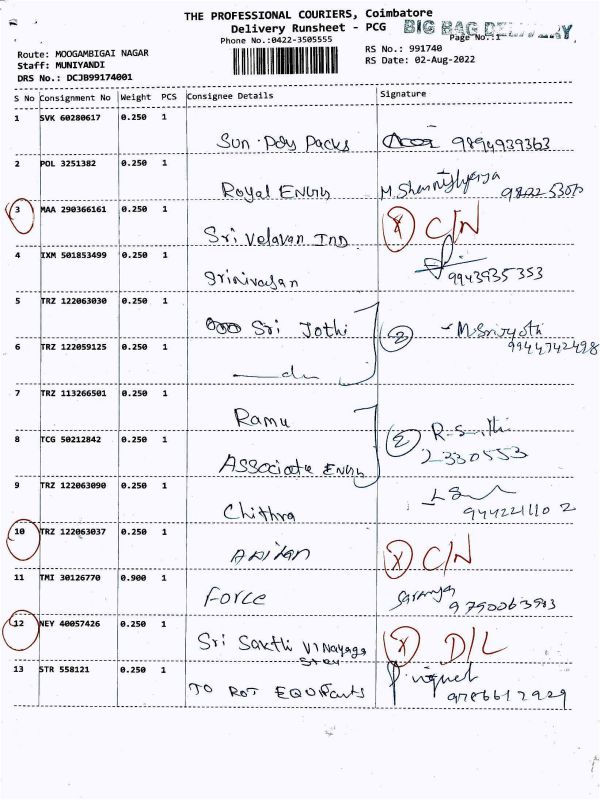 THE PROFESSIONAL COURIERS, Coimbatore
Delivery Runsheet - PCG BIG BAG DELIVERY
Phone No.:0422-3505555 Page No.:1
Route: MOOGAMBIGAI NAGAR RS No.: 991740
Staff: MUNIYANDI RS Date: 02-Aug-2022
DRS No.: DCJB99174001
S No Consignment No Weight PCS Consignee Details Signature
1 SVK 60280617 0.250 1
Sun Poly Packs 9894939363
2 POL 3251382 0.250 1
Royal Engg
3 MAA 290366161 0.250 1
Sri Velavan Ind X C/N
4 IXM 501853499 0.250 1
Srinivasan 9943935353
5 TRZ 122063030 0.250 1
Sri Jothi 2 9944742498
6 TRZ 122059125 0.250 1
do
7 TRZ 113266501 0.250 1
Ramu
8 TCG 50212842 0.250 1
Associate Engg 2 2330553
9 TRZ 122063090 0.250 1
Chithra 9442241102
10 TRZ 122063037 0.250 1
X C/N
11 TMI 30126770 0.900 1
Force Saranya
12 NEY 40057426 0.250 1
Sri Sakthi Vinayaga X D/L
13 STR 558121 0.250 1
9786612929